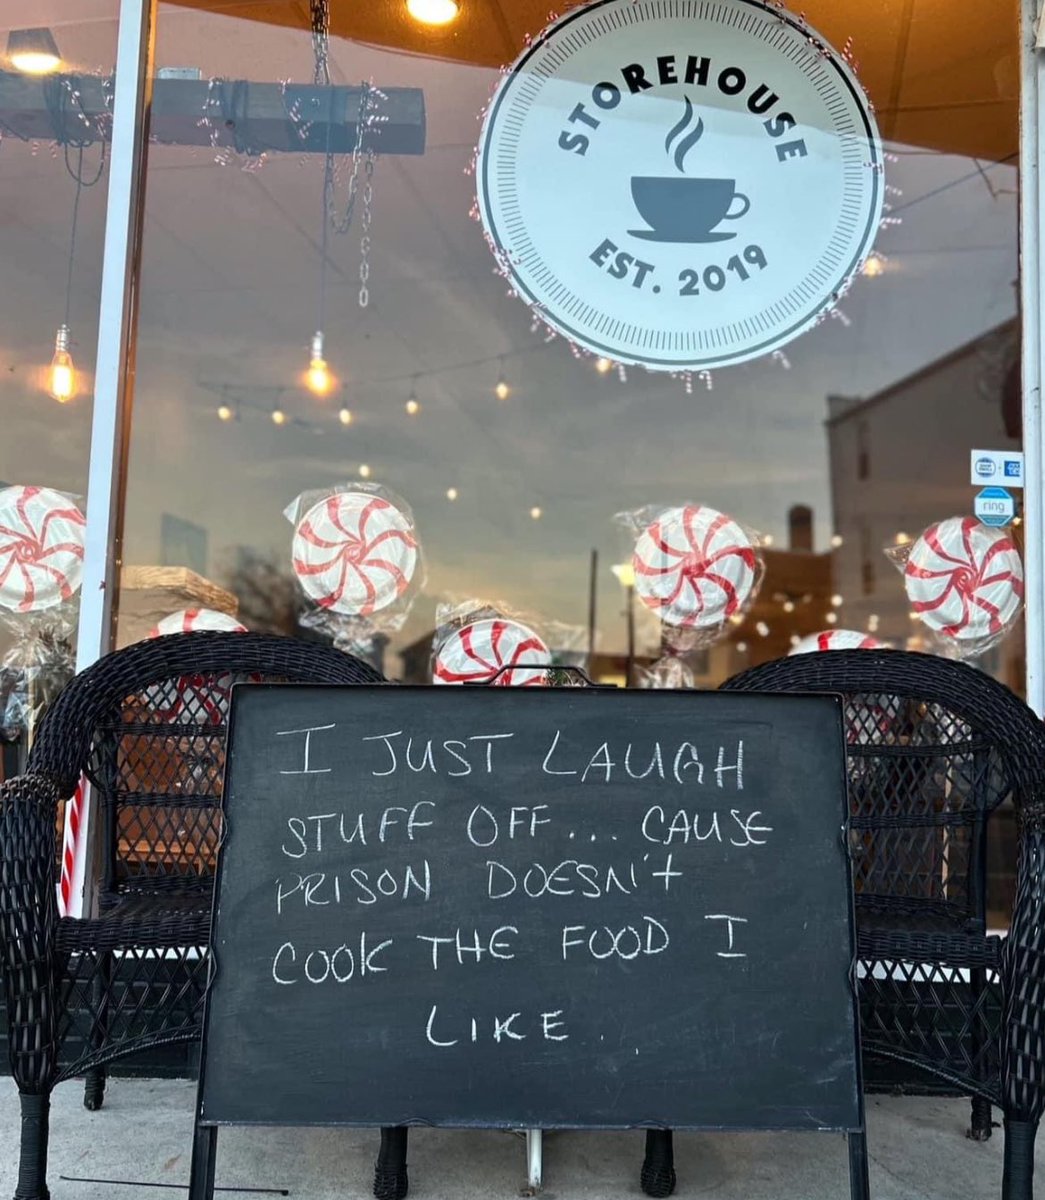 STOREHOUSE
EST. 2019
ring
I JUST LAUGH
STUFF OFF... CAUSE
PRISON DOESN't
COOK THE FOOD I
LIKE...